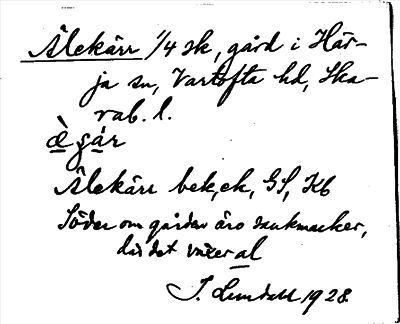 Älekärr 1/4 sk, gård i Här-
ja sn, Vartofta hd, Ska-
rab. l.
Älekärr bek, ek, GS, Kb
Söder om gården äro sankmarker,
där det växer al
J. Lundahl 1928